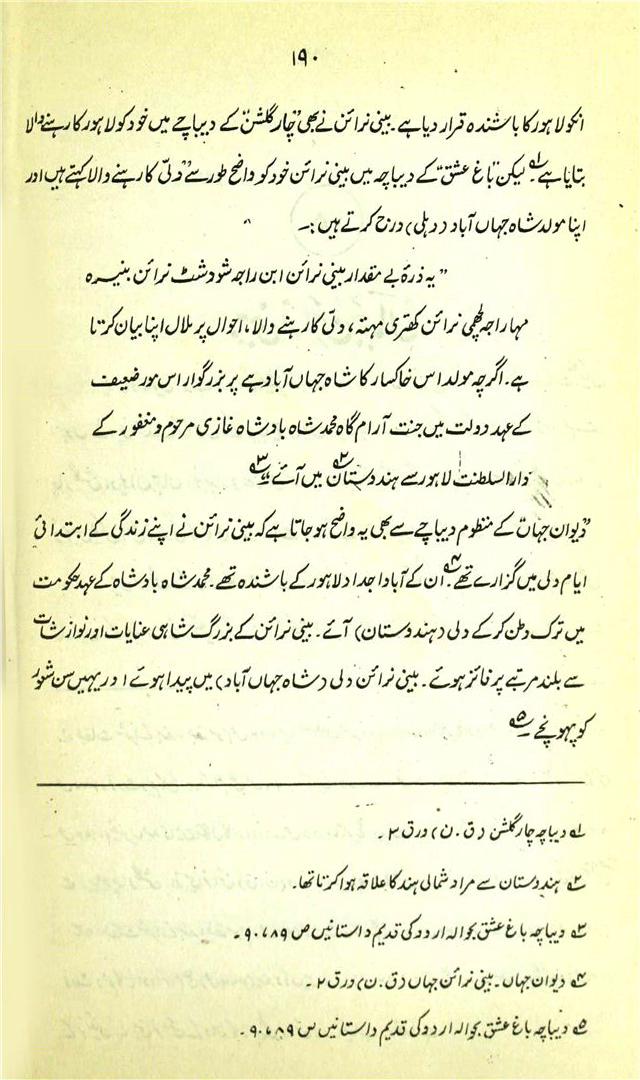 ۱۹۰
انکو لاہور کا باشندہ قرار دیا ہے۔ بینی نرائن نے بھی "چار گلشن" کے دیباچے میں خود کو لاہور کا رہنے والا
بتایا ہے۱؎۔ لیکن "باغ عشق" کے دیباچہ میں بینی نرائن خود کو واضح طور سے "دلّی کا رہنے والا کہتے ہیں اور
اپنا مولد شاہ جہاں آباد (دہلی) درج کرتے ہیں :۔
"یہ ذرۂ بے مقدار بینی نرائن ابن راجہ شودشٹ نرائن بنیرہ
مہاراجہ لچھمی نرائن کھتری مہتہ، دلّی کا رہنے والا، احوال پر ملال اپنا بیان کرتا
ہے۔ اگرچہ مولد اس خاکسار کا شاہ جہاں آباد ہے پر بزرگوار اس مور ضعیف
کے عہد دولت میں جنت آرام گاہ محمد شاہ بادشاہ غازی مرحوم و مغفور کے
دارالسلطنت لاہور سے ہندوستان۲؎ میں آئے"۳؎
"دیوان جہاں" کے منظوم دیباچے سے بھی یہ واضح ہو جاتا ہے کہ بینی نرائن نے اپنے زندگی کے ابتدائی
ایام دلی میں گزارے تھے۴؎۔ ان کے آباد اجداد لاہور کے باشندہ تھے۔ محمد شاہ بادشاہ کے عہد حکومت
میں ترک وطن کر کے دلی (ہندوستان) آئے۔ بینی نرائن کے بزرگ شاہی عنایات اور نوازشات
سے بلند مرتبے پر فائز ہوئے۔ بینی نرائن دلی (شاہ جہاں آباد) میں پیدا ہوئے اور یہیں سن شعور
کو پہونچے۵؎۔
۱؎ دیباچہ چار گلشن (ق۔ن) ورق ۲۔
۲؎ ہندوستان سے مراد شمالی ہند کا علاقہ ہوا کرتا تھا۔
۳؎ دیباچہ باغ عشق بحوالہ اردو کی قدیم داستانیں ص ۸۹، ۹۰۔
۴؎ دیوان جہاں۔ بینی نرائن جہاں (ق۔ن) ورق ۲۔
۵؎ دیباچہ باغ عشق بحوالہ اردو کی قدیم داستانیں ص ۸۹، ۹۰۔